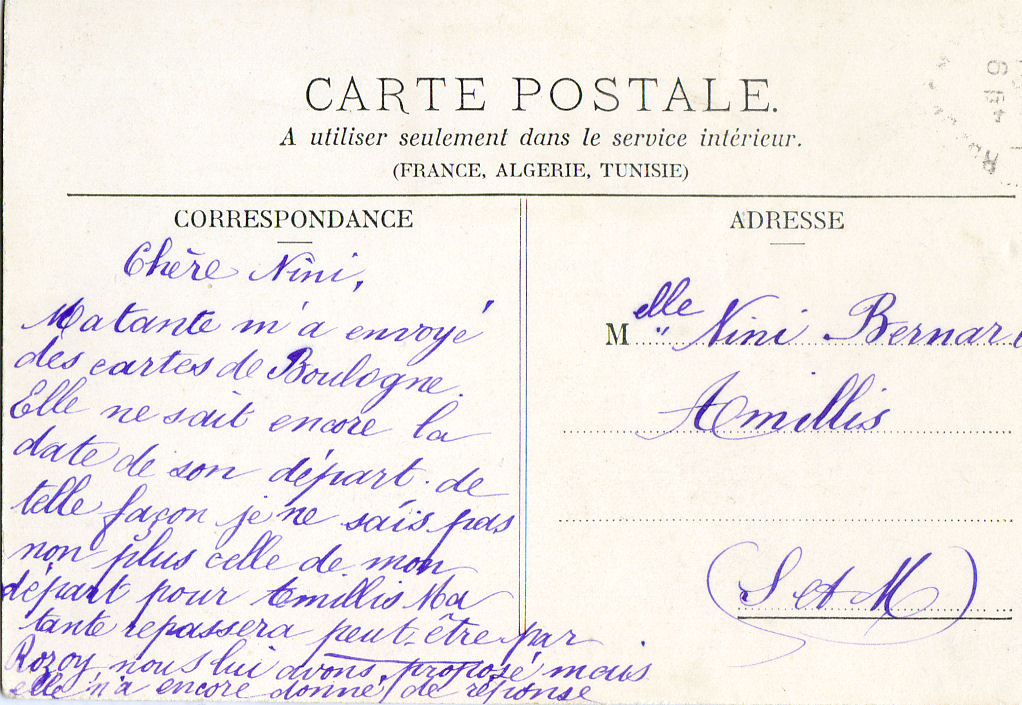 CARTE POSTALE.
A utiliser seulement dans le service intérieur.
(FRANCE, ALGERIE, TUNISIE)
CORRESPONDANCE
Chère Nini,
Ma tante m'a envoyé
des cartes de Boulogne.
Elle ne sait encore la
date de son départ. de
telle façon je ne sais pas
non plus celle de mon
départ pour Amillis Ma
tante repassera peut-être par
Rozoy, nous lui avons proposé mais
elle n'a encore donné de réponse
ADRESSE
Melle Nini Bernar
Amillis
(S et M)